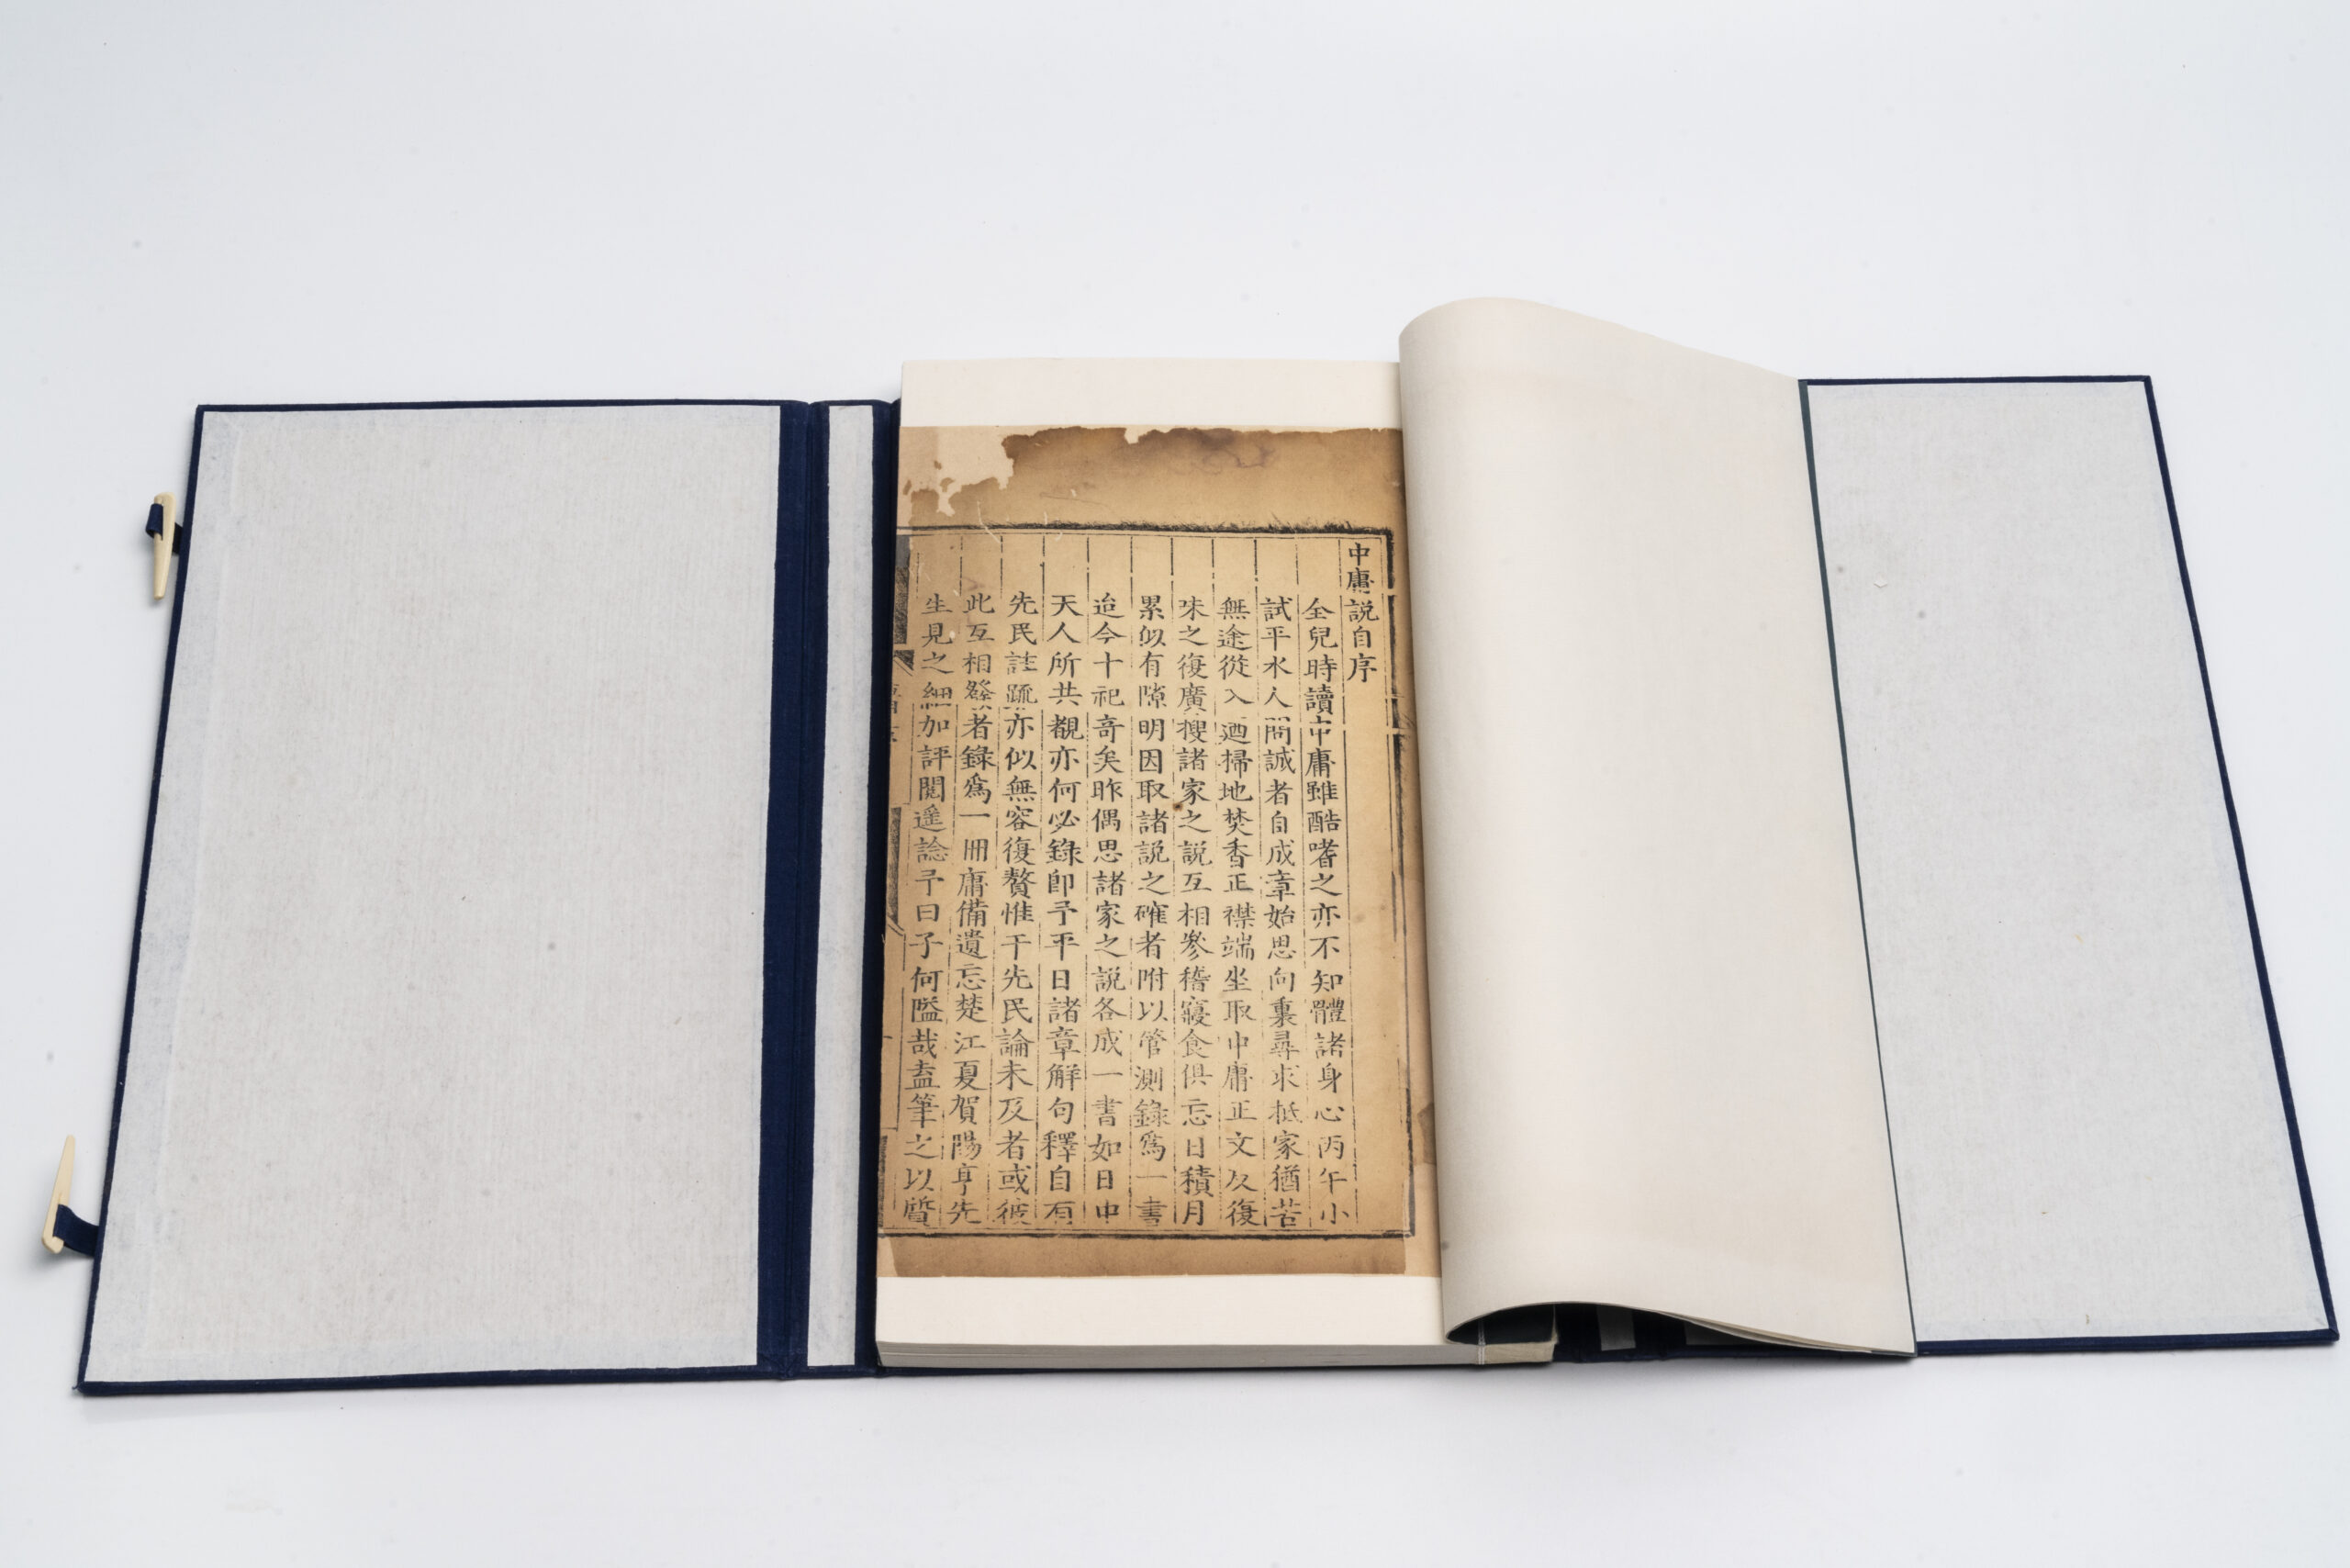 中庸説自序
全兒時讀中庸雖酷嗜之亦不知體諸身心丙午小
試平水人問誠者自成章始思向裏尋求抵家猶苦
無途從入迺掃地焚香正襟端坐取中庸正文反復
味之復廣搜諸家之説互相參稽寢食俱忘日積月
累似有隙明因取諸説之確者附以管測錄爲一書
迨今十祀奇矣昨偶思諸家之説各成一書如日中
天人所共覩亦何必錄卽予平日諸章解句釋自有
先民註疏亦似無容復贅惟于先民論未及者或彼
此互相發者錄爲一冊庸備遺忘楚江夏賀陽亨先
生見之細加評閲遥諗予曰子何隘哉盍筆之以質